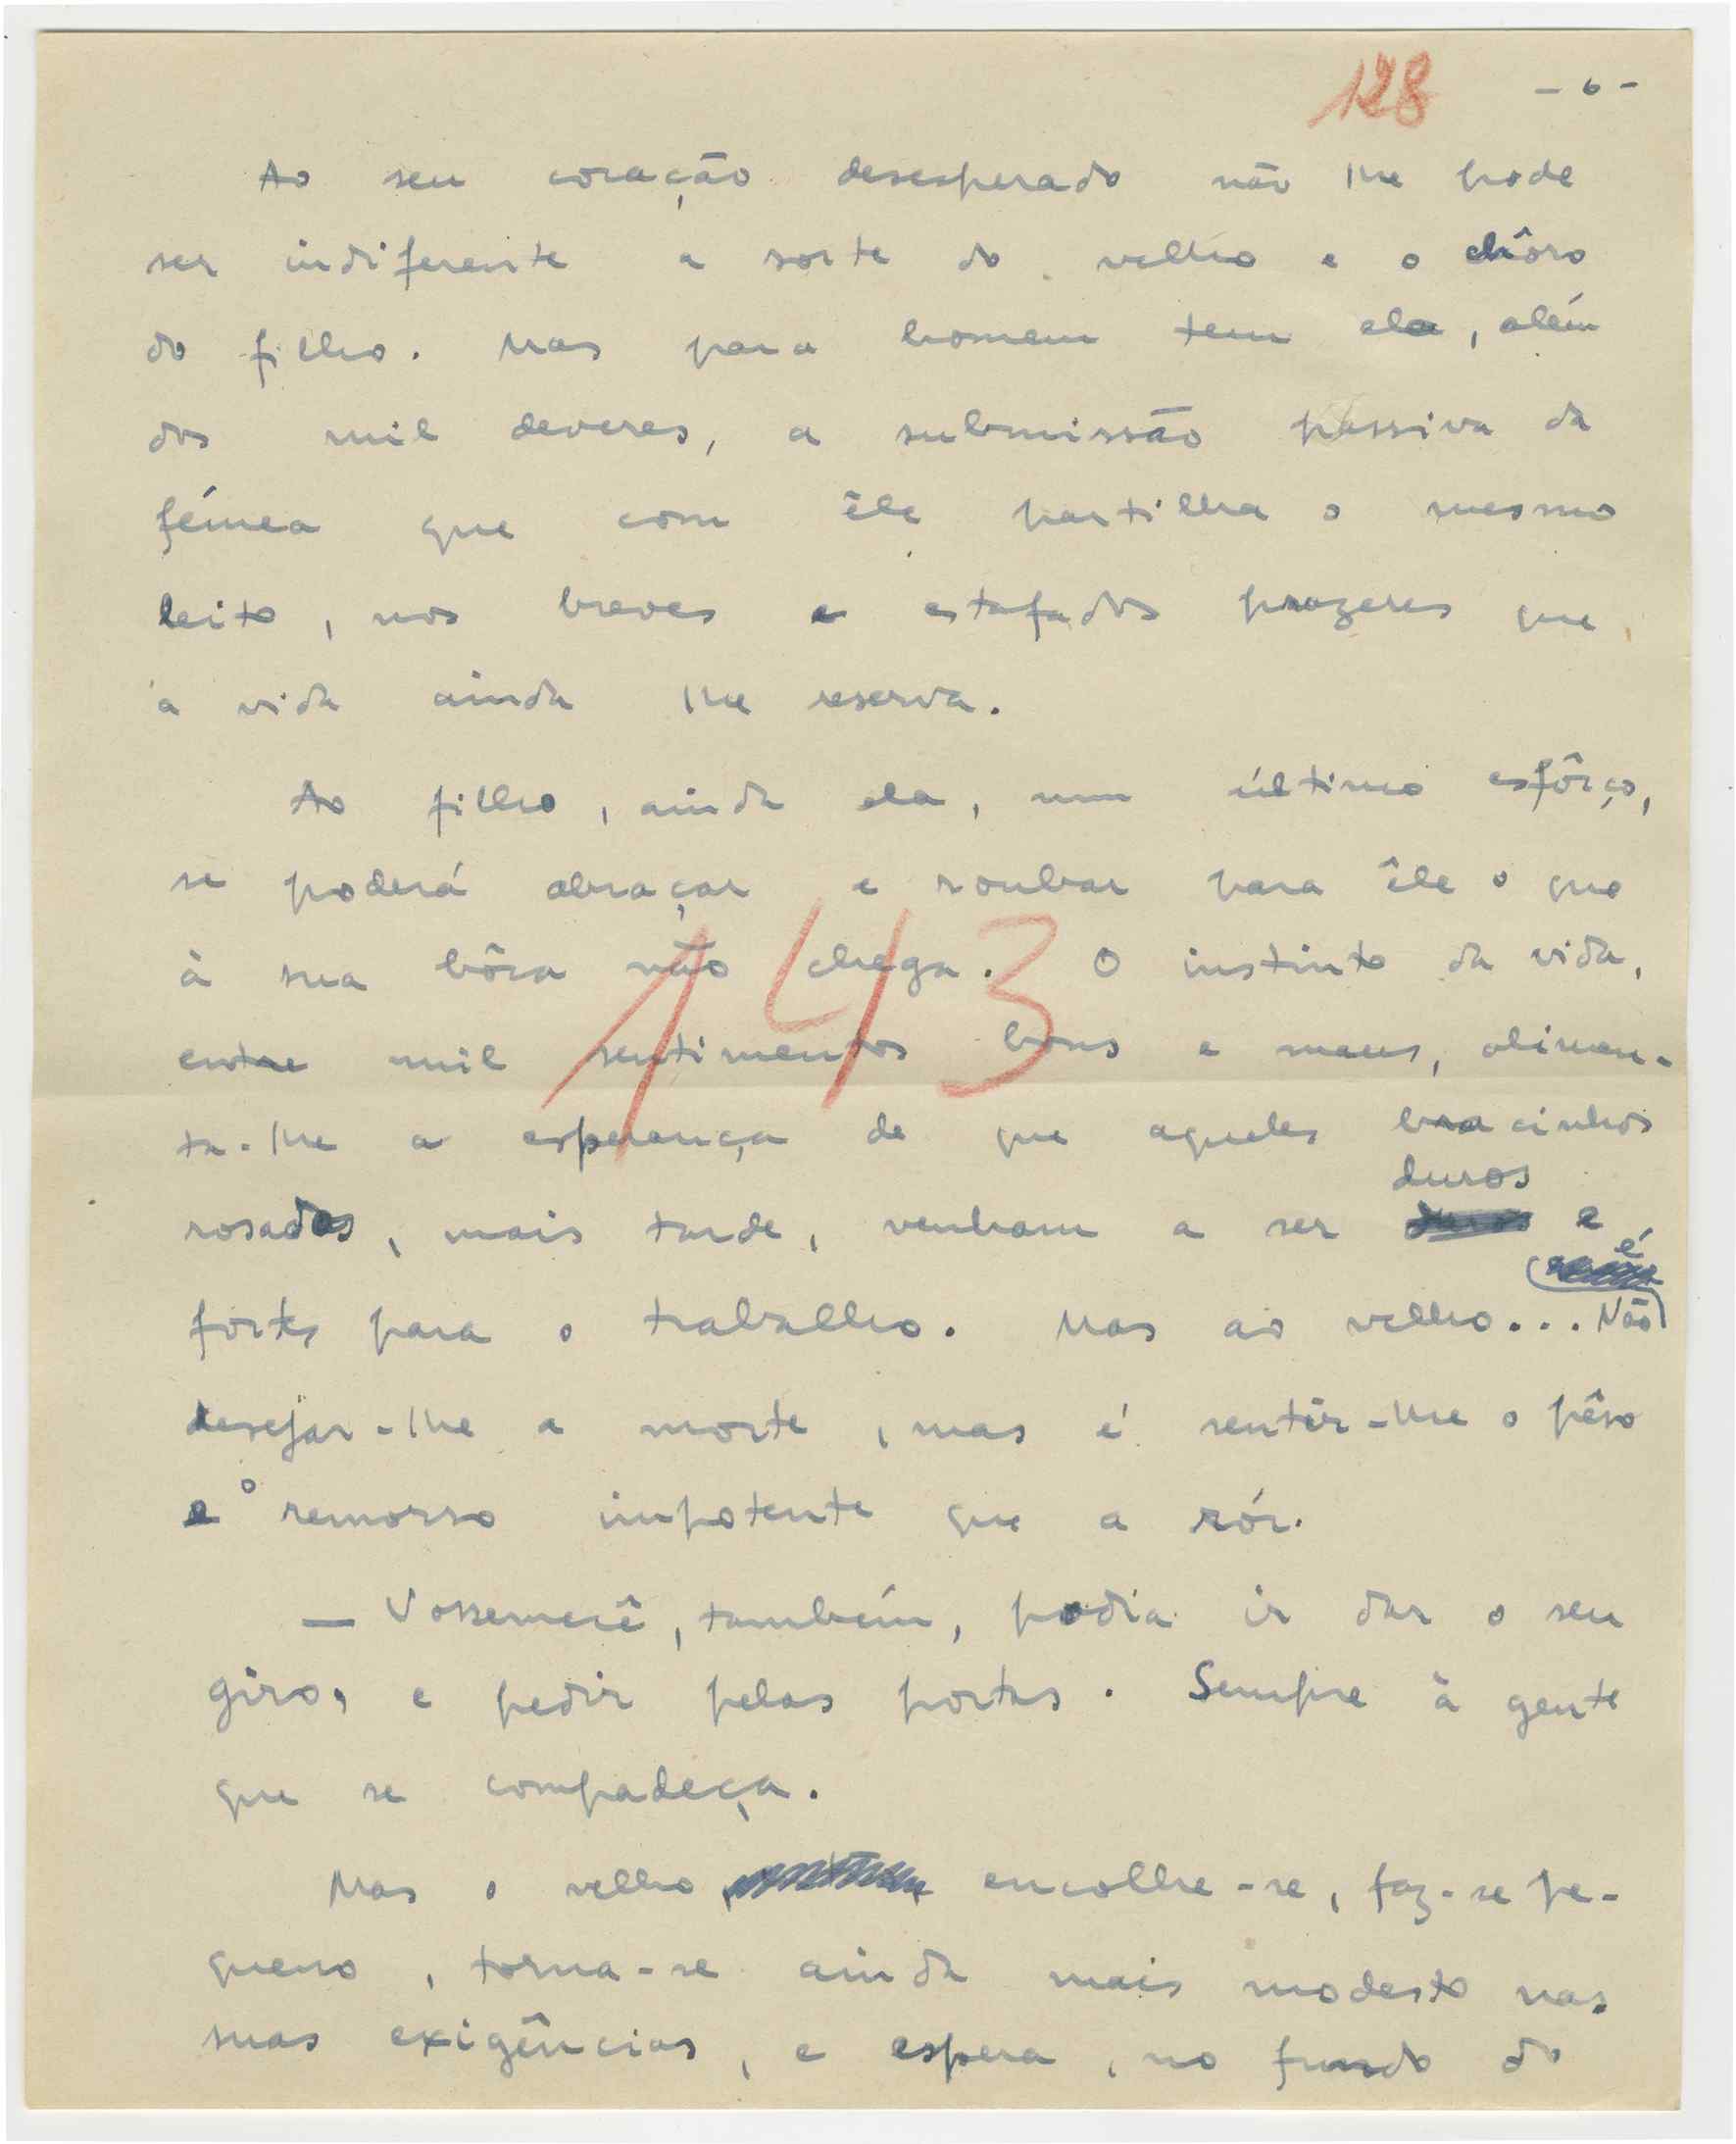 128 - 6 -
Ao seu coração desesperado não lhe pode
ser indiferente a sorte do velho e o chôro
do filho. Mas para homem tem ela, além
dos mil deveres, a submissão passiva da
fémea que com êle partilha o mesmo
leito, nos breves e estafados prazeres que
a vida ainda lhe reserva.
Ao filho, ainda ela, num último esfôrço,
se poderá abraçar e roubar para êle o que
à sua bôca não chega. O instinto da vida,
143
entre mil sentimentos bons e maus, alimen-
ta-lhe a esperança de que aqueles bracinhos
rosados, mais tarde, venham a ser duros e
fortes para o trabalho. Mas ao velho... Não é
desejar-lhe a morte, mas é sentir-lhe o pêso
e o remorso impotente que a rói.
— Vossemecê, também, podia ir dar o seu
giro, e pedir pelas portas. Sempre à gente
que se compadeça.
Mas o velho encolhe-se, faz-se pe-
queno, torna-se ainda mais modesto nas
suas exigências, e espera, no fundo do